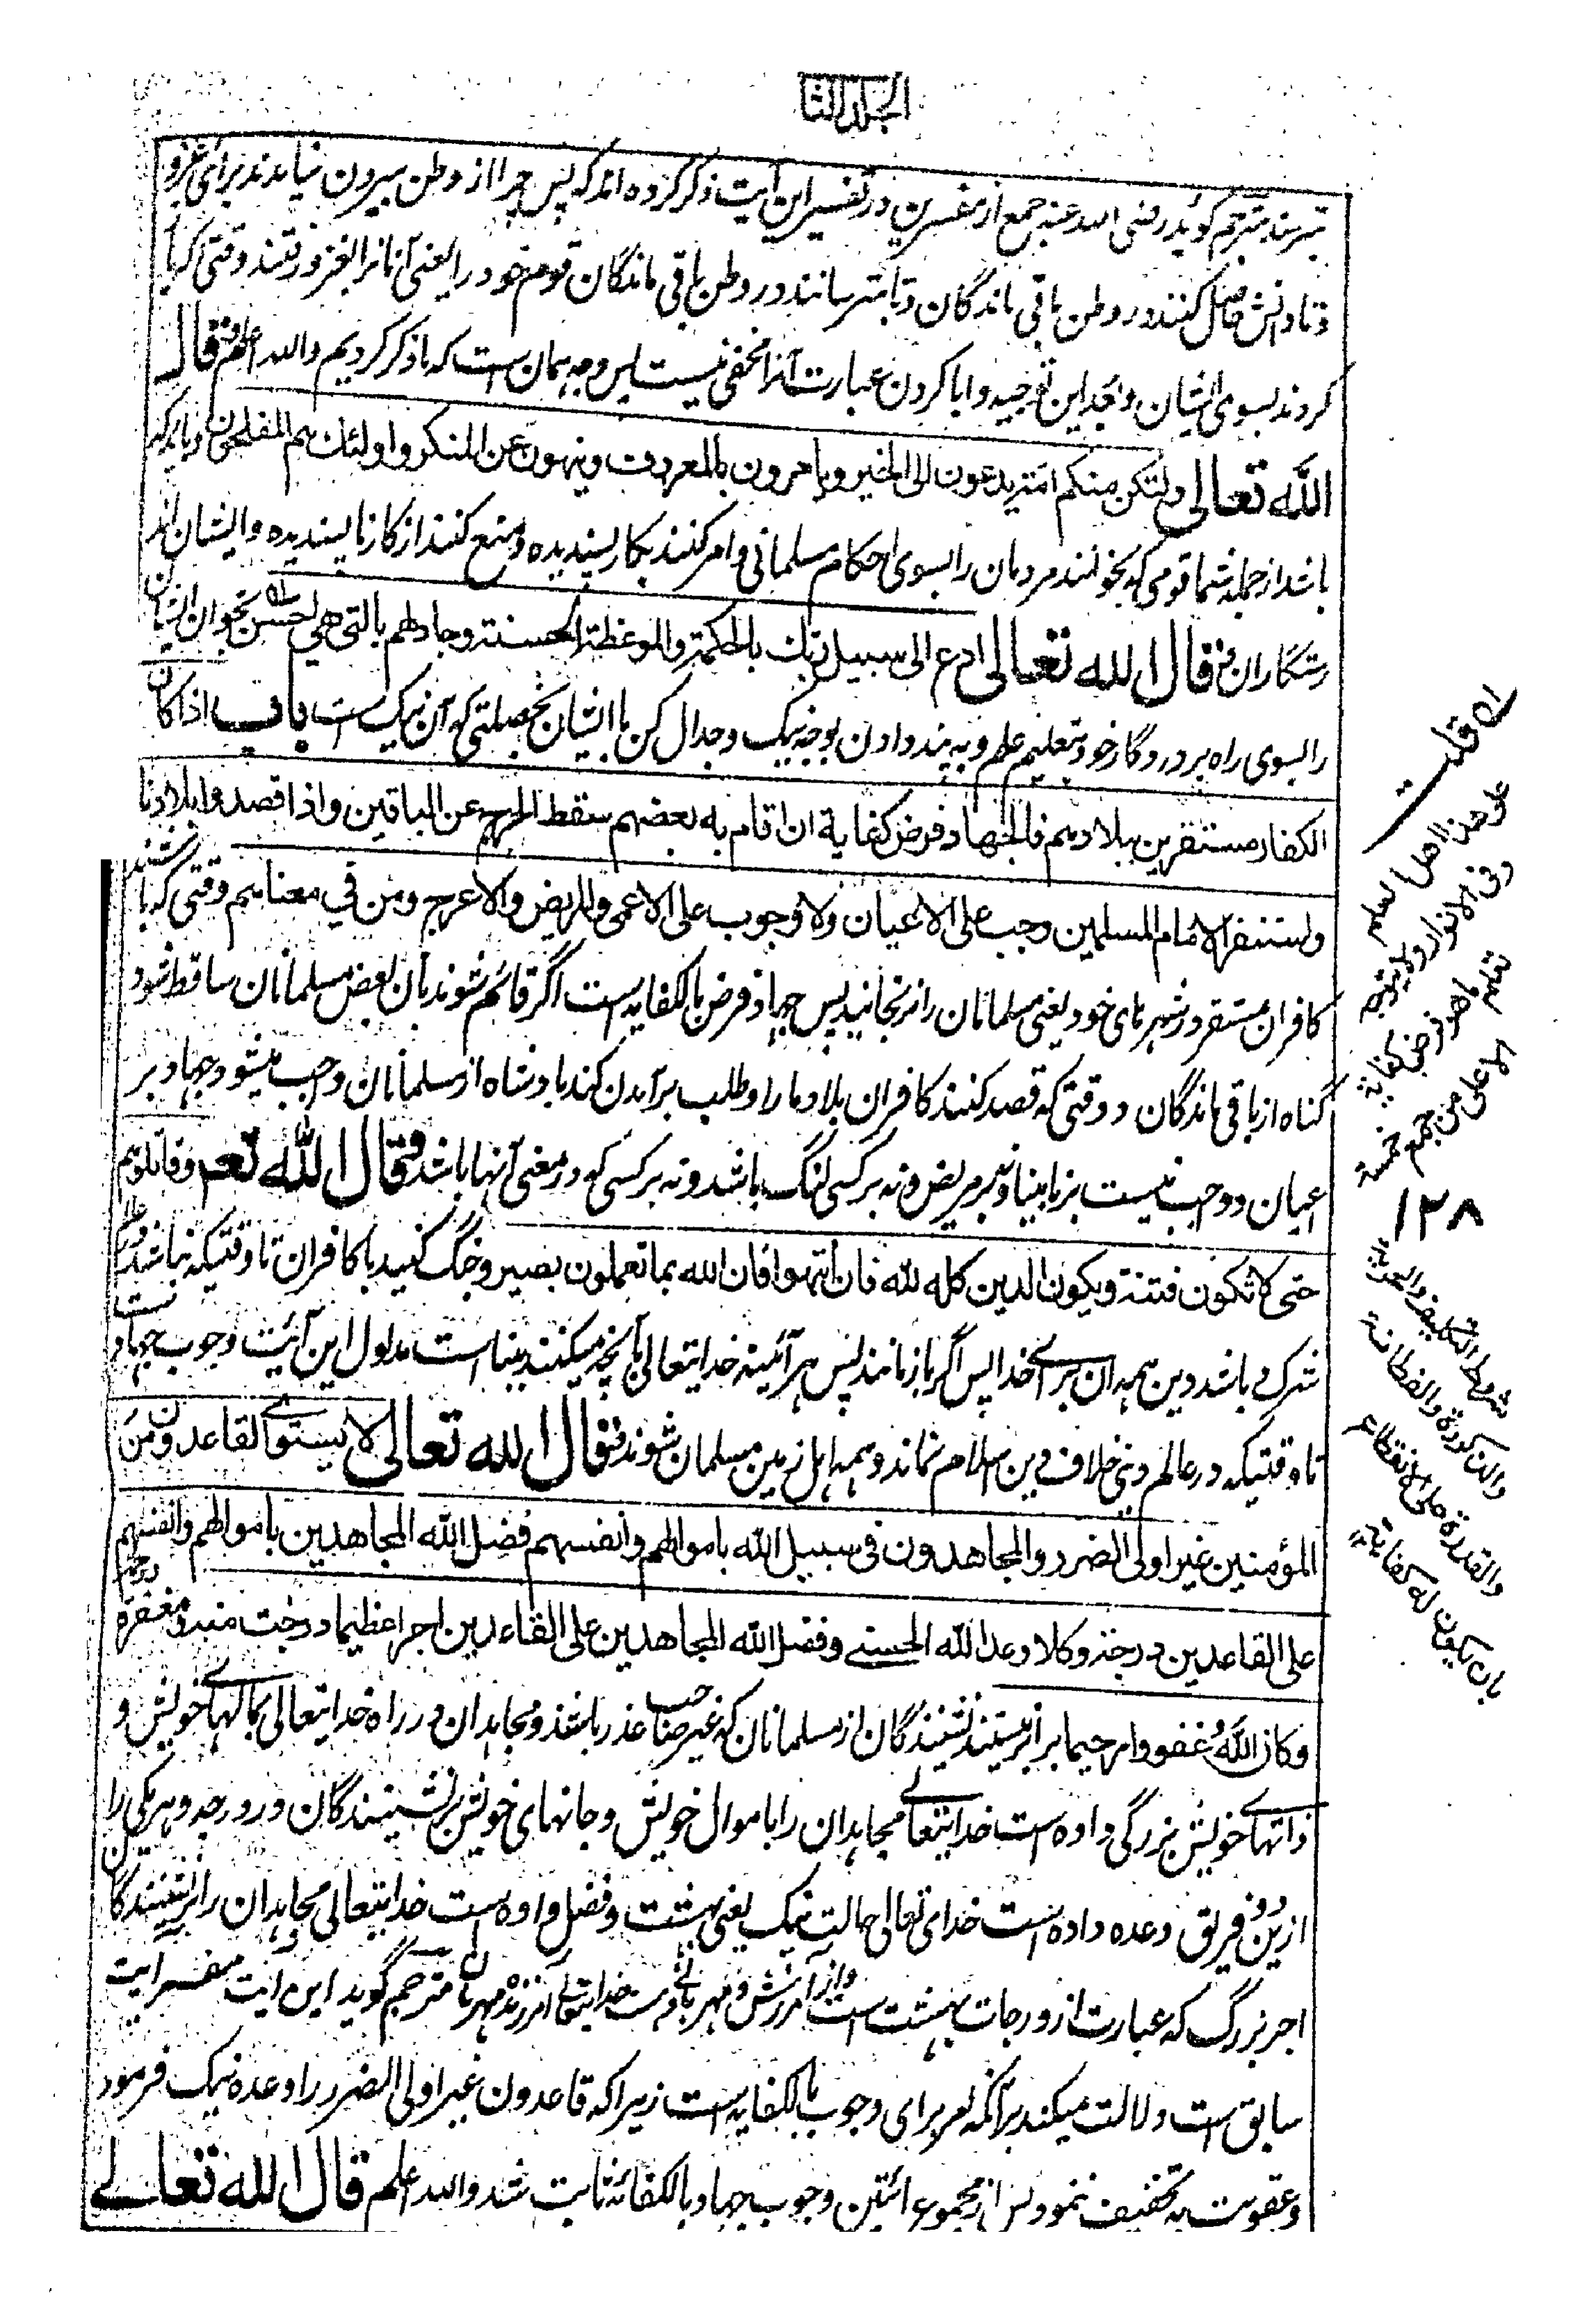 الجلد الثا
بترسند مترجم گوید رضی الله عنه جمع از مفسرین در تفسیر این آیت ذکر کرده اند که پس چرا از وطن بیرون نیامدند برای غزو
و تا دانش حاصل کنند در وطن باقی ماندگان و تا بترسانند در وطن باقی ماندگان قوم خود را یعنی آنانرا الغزو رفتند وقتی که باز
گردند بسوی ایشان و بُعد این توجیه و ابا کردن عبارت آنرا مخفی نیست پس وجه همان ست که ما ذکر کردیم والله اعلم قال
الله تعالی ولتکن منکم امة یدعون الی الخیر ویامرون بالمعروف وینهون عن المنکر واولئک هم المفلحون و باید که
باشد از جمله شما قومی که بخوانند مردمان را بسوی احکام مسلمانی و امر کنند بکار پسندیده و منع کنند از کار ناپسندیده و ایشان اند
رستگاران قال الله تعالی ادع الی سبیل ربک بالحکمة والموعظة الحسنة وجادلهم بالتی هی احسن بخوان ایشان
را بسوی راه پروردگار خود بتعلیم علم و به پند دادن بوجه نیک و جدال کن با ایشان بخصلتی که آن نیک ست باب اذا کان
الکفار مستقرین ببلادهم فالجهاد فرض کفایة ان قام به بعضهم سقط الحرج عن الباقین واذا قصدوا بلادنا
واستنفر الامام المسلمین وجب علی الاعیان ولا وجوب علی الاعمی والمریض والاعرج ومن فی معناهم وقتی که باشند
کافران مستقر در شهرهای خود یعنی مسلمانان را نرنجانید پس جهاد فرض بالکفایه است اگر قائم شوند بآن بعض مسلمانان ساقط شود
گناه از باقی ماندگان و وقتی که قصد کنند کافران بلاد ما را و طلب برآمدن کند بادشاه از مسلمانان واجب میشود جهاد بر
اعیان و واجب نیست بر نابینا و نه بر مریض و نه بر کسی لنگ باشد و نه بر کسی که در معنی آنها باشد قال الله تعم وقاتلوهم
حتی لا تکون فتنة ویکون الدین کله لله فان انتهوا فان الله بما یعملون بصیر و جنگ کنید با کافران تا وقتیکه نباشد
شرک و باشد دین همه آن برای خدا پس اگر باز مانند پس هر آئینه خدایتعالی بآنچه میکنند بینا است مدلول این آیت وجوب جهاد است
تا وقتیکه در عالم دینی خلاف دین اسلام نماند و همه اهل زمین مسلمان شوند قال الله تعالی لا یستوی القاعدون من
المؤمنین غیر اولی الضرر والمجاهدون فی سبیل الله باموالهم وانفسهم فضل الله المجاهدین باموالهم وانفسهم
علی القاعدین درجة وکلا وعد الله الحسنی وفضل الله المجاهدین علی القاعدین اجرا عظیما درجات منه ومغفرة ورحمة
وکان الله غفورا رحیما برابر نیستند نشینندگان از مسلمانان که غیر صاحب عذر باشند و مجاهدان در راه خدایتعالی بمالهای خویش و
ذاتهای خویش بزرگی داده ست خدایتعالی مجاهدان را باموال خویش و جانهای خویش بر نشینندگان در درجه و هر یکی را
ازین دو فریق وعده داده ست خدای تعالی حالت نیک یعنی بهشت و فضل داده ست خدایتعالی مجاهدان را بر نشینندگان
اجر بزرگ که عبارت از درجات بهشت است و از آمرزش و مهربانی و هست خدایتعالی آمرزنده مهربان مترجم گوید این آیت مفسر آیت
سابق ست و دلالت میکند بر آنکه امر برای وجوب بالکفایه ست زیرا که قاعدون غیر اولی الضرر را وعده نیک فرمود
و عقوبت به تخفیف نمود پس از مجموع آیتین وجوب جهاد بالکفائة ثابت شد والله اعلم قال الله تعالی
له قلت
علی هذا اهل العلم
وفی الانوار ولا یتوجه
تعلم ما هو فرض کفایة
الا علی من جمع خمسة
۱۲۸
شروط التکلیف والحریة
والذکورة والفطانة
والقدرة علی الانقطاع
بان یکون له کفایة